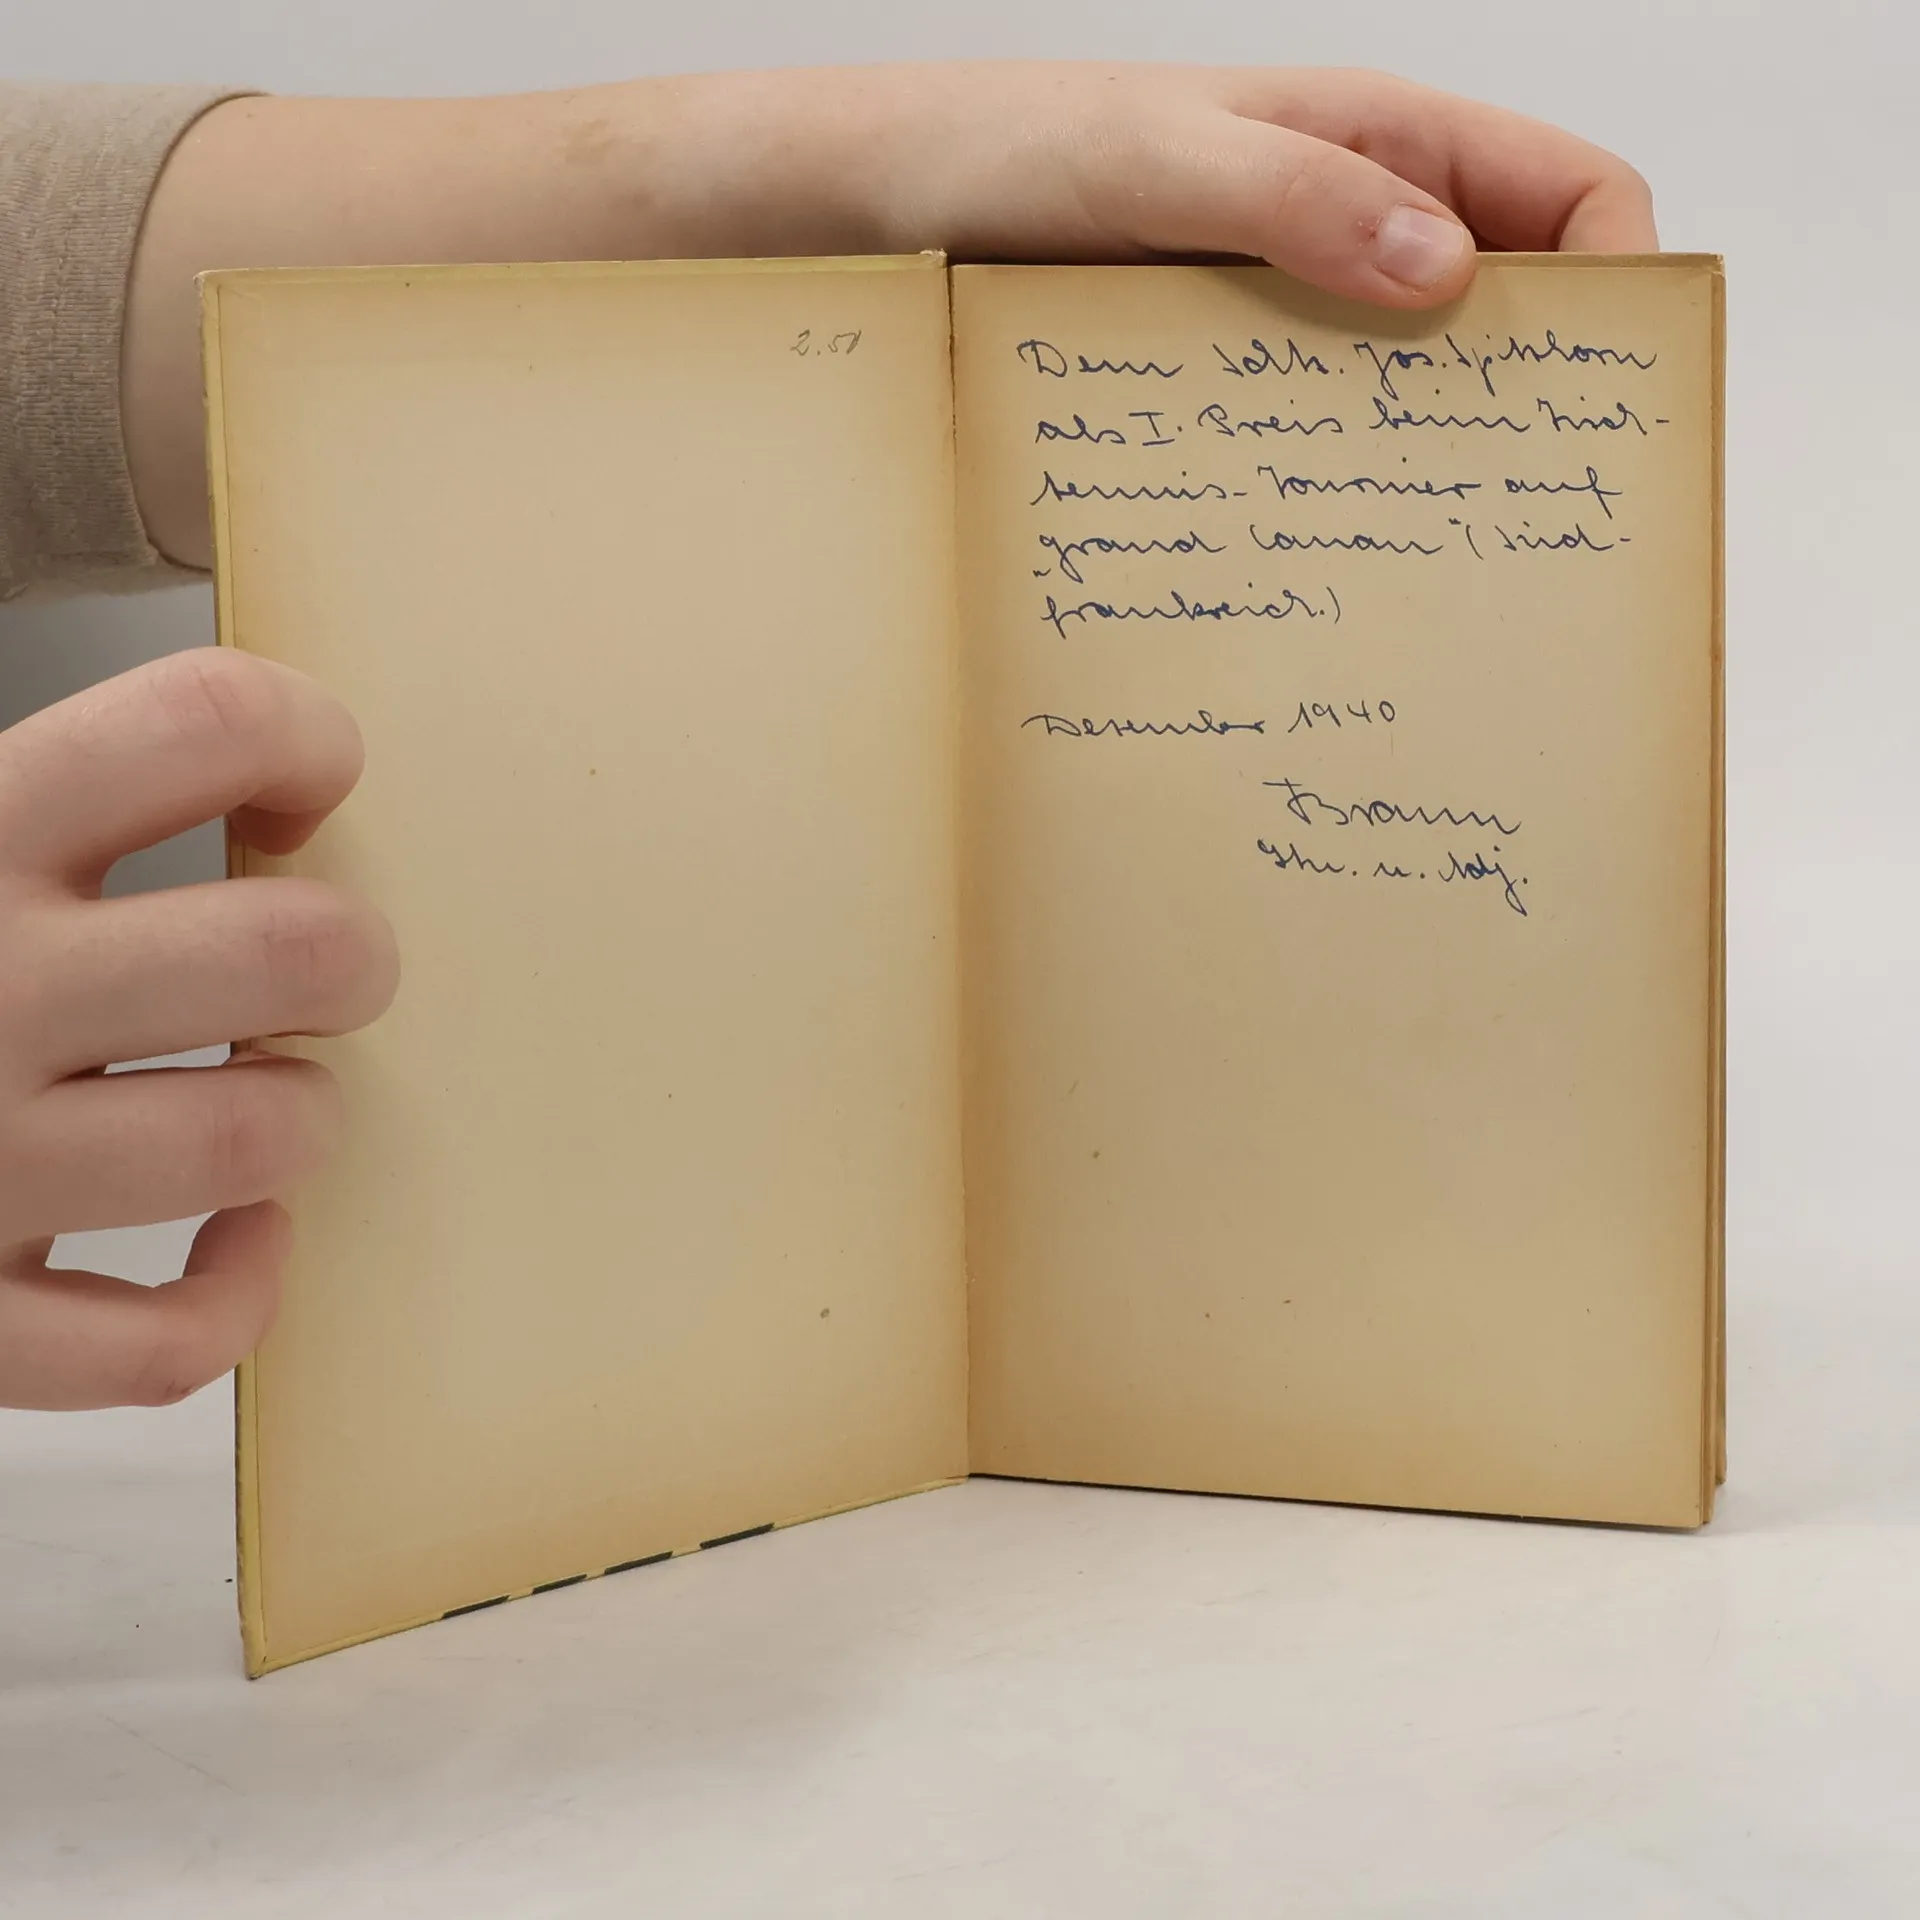 2.50
Dem Sdtk. Jos. Spitkorn
als I. Preis beim Tisch-
tennis-Tournier auf
„grand Canan" (Süd-
frankreich.)
Dezember 1940
Braun
u. Adj.